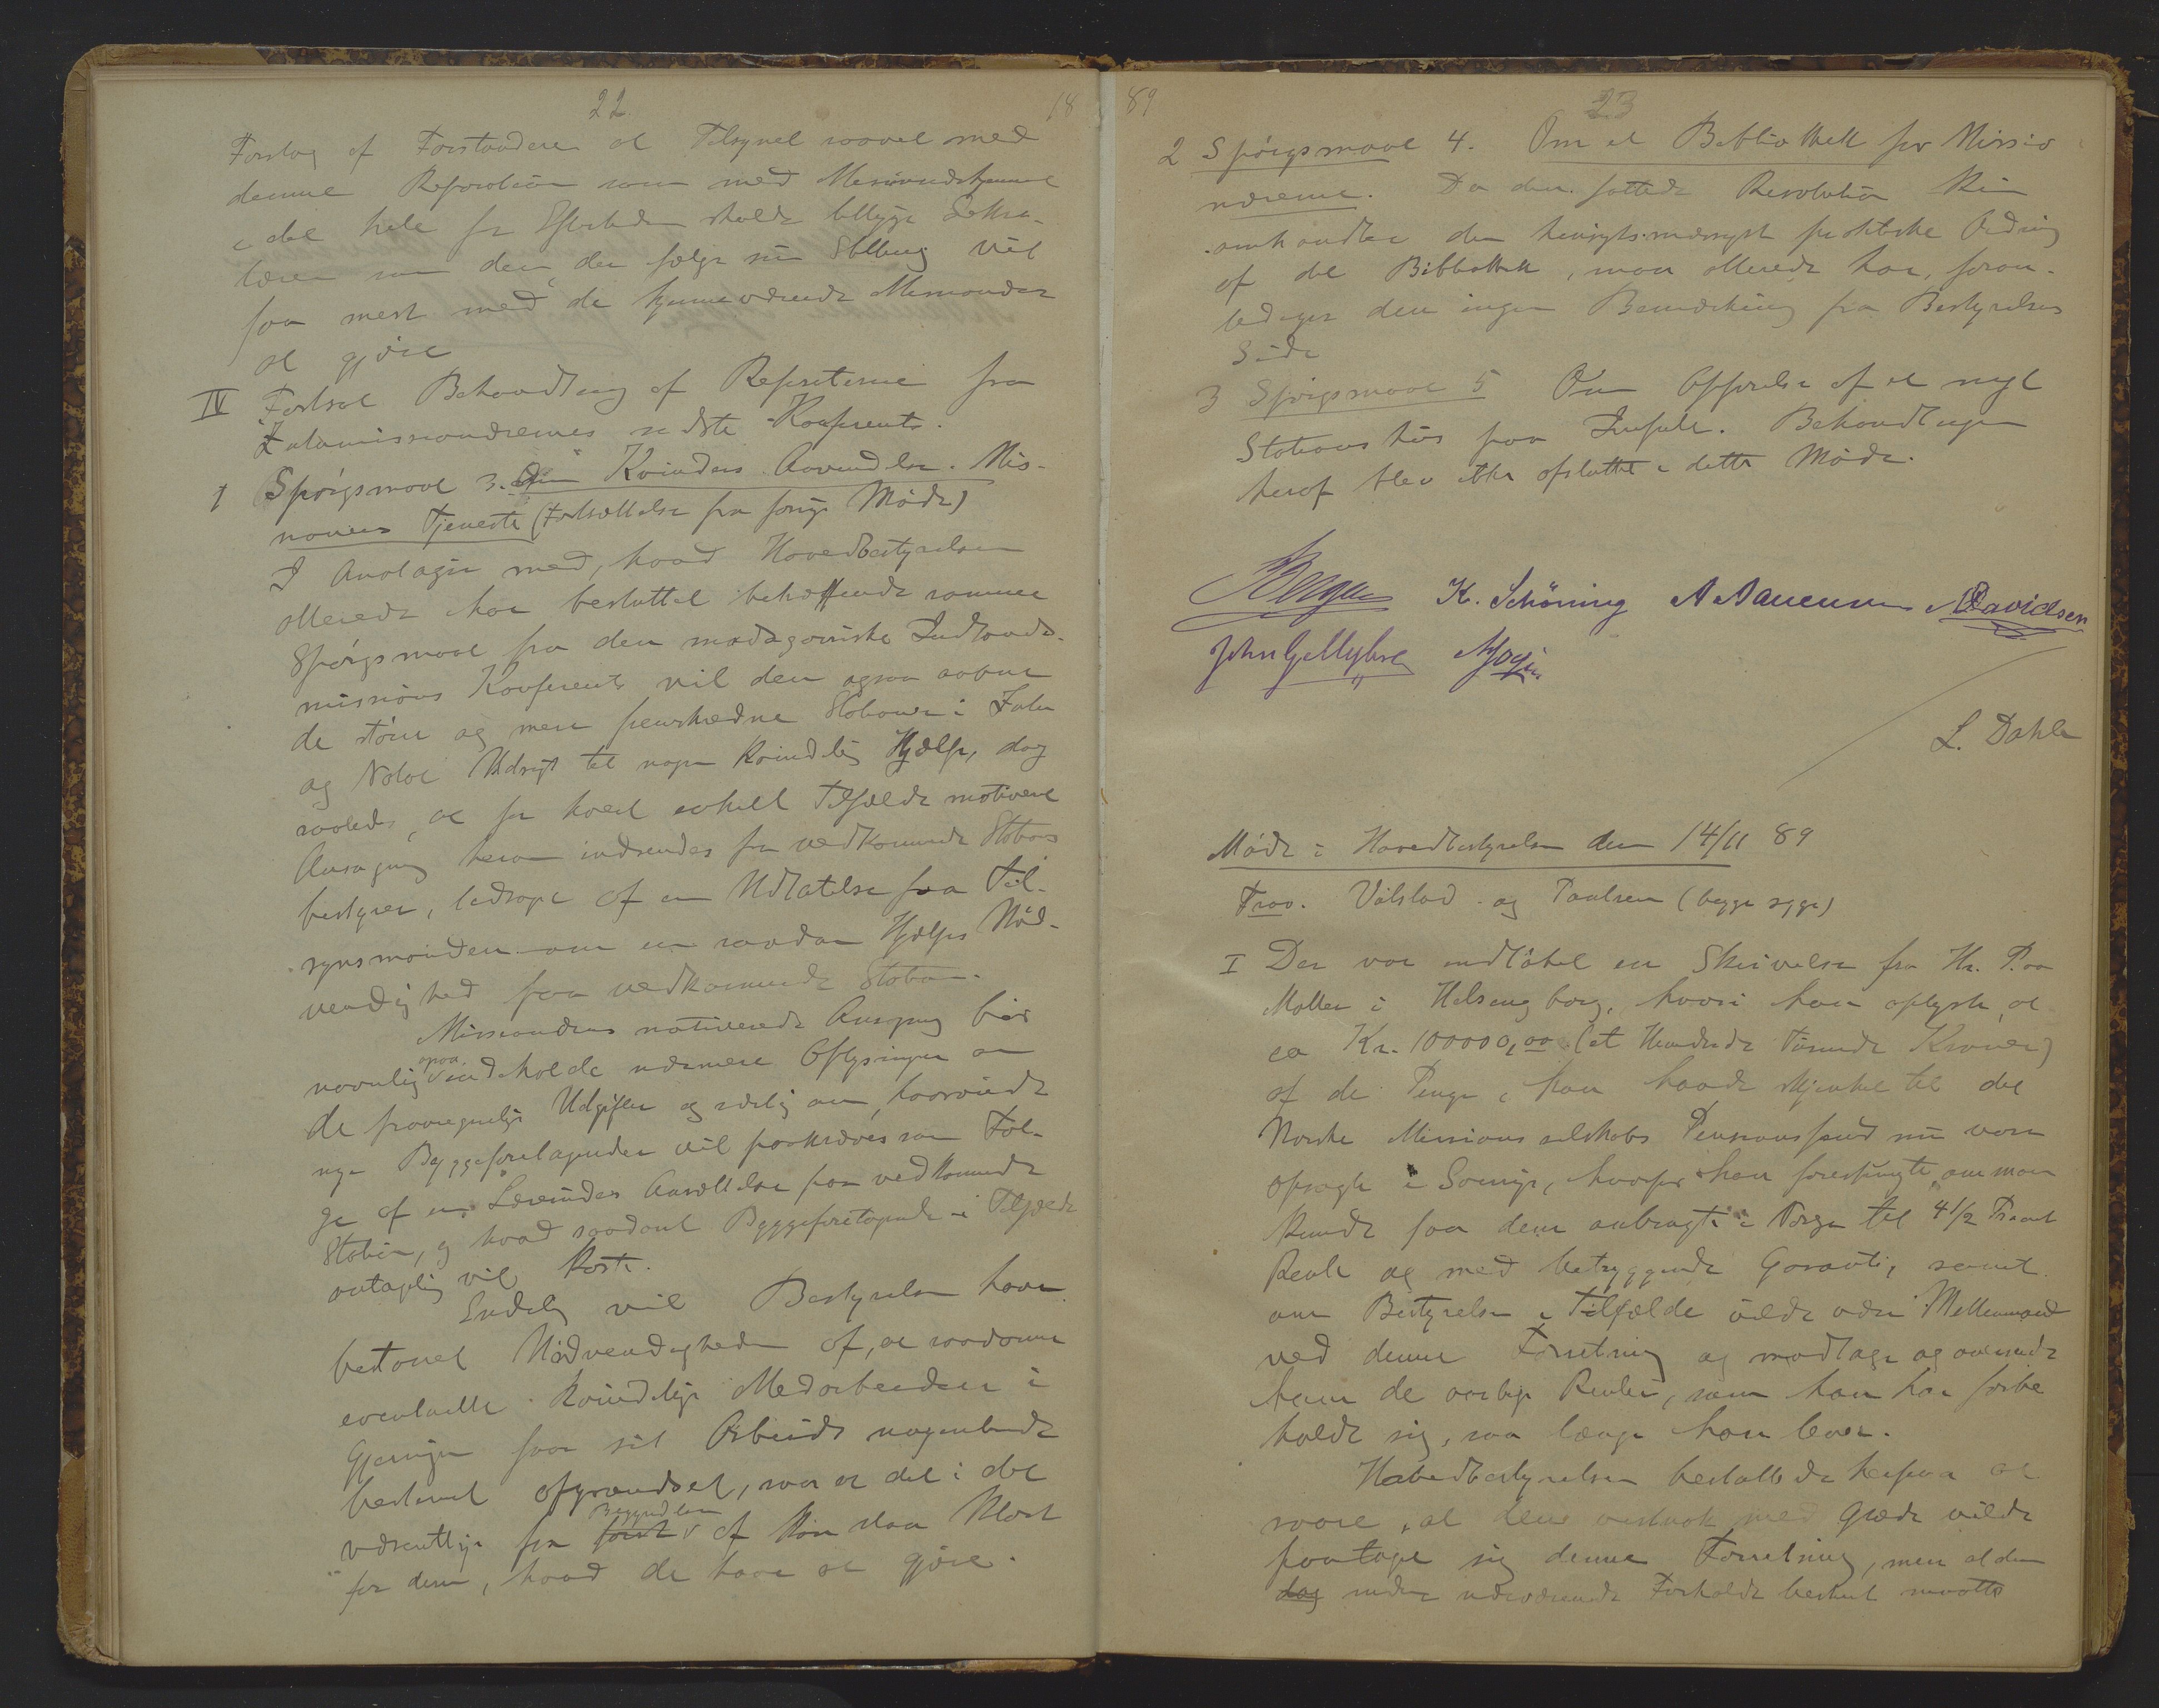 22.
18
Forslag af Forstanderen at Tilsynet saavel med
denne Reparation som med Missionsskjemaet
i det hele for Eftertiden skulde tillægges Sekre-
tæren som den, der ifølge sin Stilling vil
faa mest med de hjemmeværende Missionærer
at gjøre
IV Fortsat Behandling af Referaterne fra
Zulumissionærernes sidste Konferents.
1 Spørgsmaal 3. Om Kvinders Anvendelse i Mis-
sionens Tjeneste (Fortsættelse fra forrige Møde)
I Analogi med, hvad Hovedbestyrelsen
allerede har besluttet betræffende samme
Spørgsmaal fra den madagassiske Indlands-
missions Konferents vil den ogsaa aabne
de større og mere fremskredne Stationer i Zulu
og Natal Udsigt til nogen kvindelig Hjælp, dog
saaledes, at for hvert enkelt Tilfælde motiveret
Ansøgning herom indsendes fra vedkommende Stations
bestyrer, ledsaget af en Udtalelse fra Til-
synsmanden om en saadan Hjælps Nød-
vendighed paa vedkommende Station.
Missionærens motiverede Ansøgning bør
navnlig ogsaa indeholde nærmere Oplysninger om
de paaregnelige Udgifter og særlig om, hvorvidt
nye Byggeforetagender vil paakræves som Føl-
ge af en Lærerindes Ansættelse paa vedkommende
Station, og hvad saadant Byggeforetagende i Tilfælde
antagelig vil koste.
Endelig vil Bestyrelsen have
betonet Nødvendigheden af, at saadanne
eventuelle kvindelige Medarbeidere i
Gjerningen faar sit Arbeide nogenlunde
bestemt afgrændset, saa at det i det
væsentlige fra først Begyndelsen af kan staa klart
for dem, hvad de have at gjøre.
89
23
2 Spørgsmaal 4. Om et Bibliothek for Missio
nærerne. Da den fattede Resolution kun
omhandler den hensigtsmæssigste praktiske Ordning
af det Bibliothek, man allerede har, foran-
lediger den ingen Bemærkning fra Bestyrelsens
Side
3 Spørgsmaal 5 Om Opførelse af et nyt
Stationshus paa Inhsule. Behandlingen
heraf blev ikke afsluttet i dette Møde.
K. Schöning Davidsen
L. Dahle
Møde i Hovedbestyrelsen den 14/11 89
Frav. Valstad og Paulsen (begge syge)
I Der var indløbet en Skrivelse fra Hr. P. aa
Møller i Helsingborg, hvori han oplyste, at
ca Kr. 100000,00 (et Hundrede Tusende Kroner)
af de Penge, han havde skjenket til det
Norske Missionsselskabs Pensionsfond nu vare
opsagte i Sverige, hvorfor han forespurgte, om man
kunde faa dem anbragte i Norge til 4 1/2 Procent
Rente og med betryggende Garanti, samt
om Bestyrelsen i Tilfælde vilde være Mellemmand
ved denne Forretning og modtage og oversende
ham de aarlige Renter, som han har forbe
holdt sig, saa længe han lever.
Hovedbestyrelsen besluttede herpaa at
svare, at den vistnok med Glæde vilde
paatage sig denne Forretning, men at den
dog under nærværende Forholde bestemt maatte